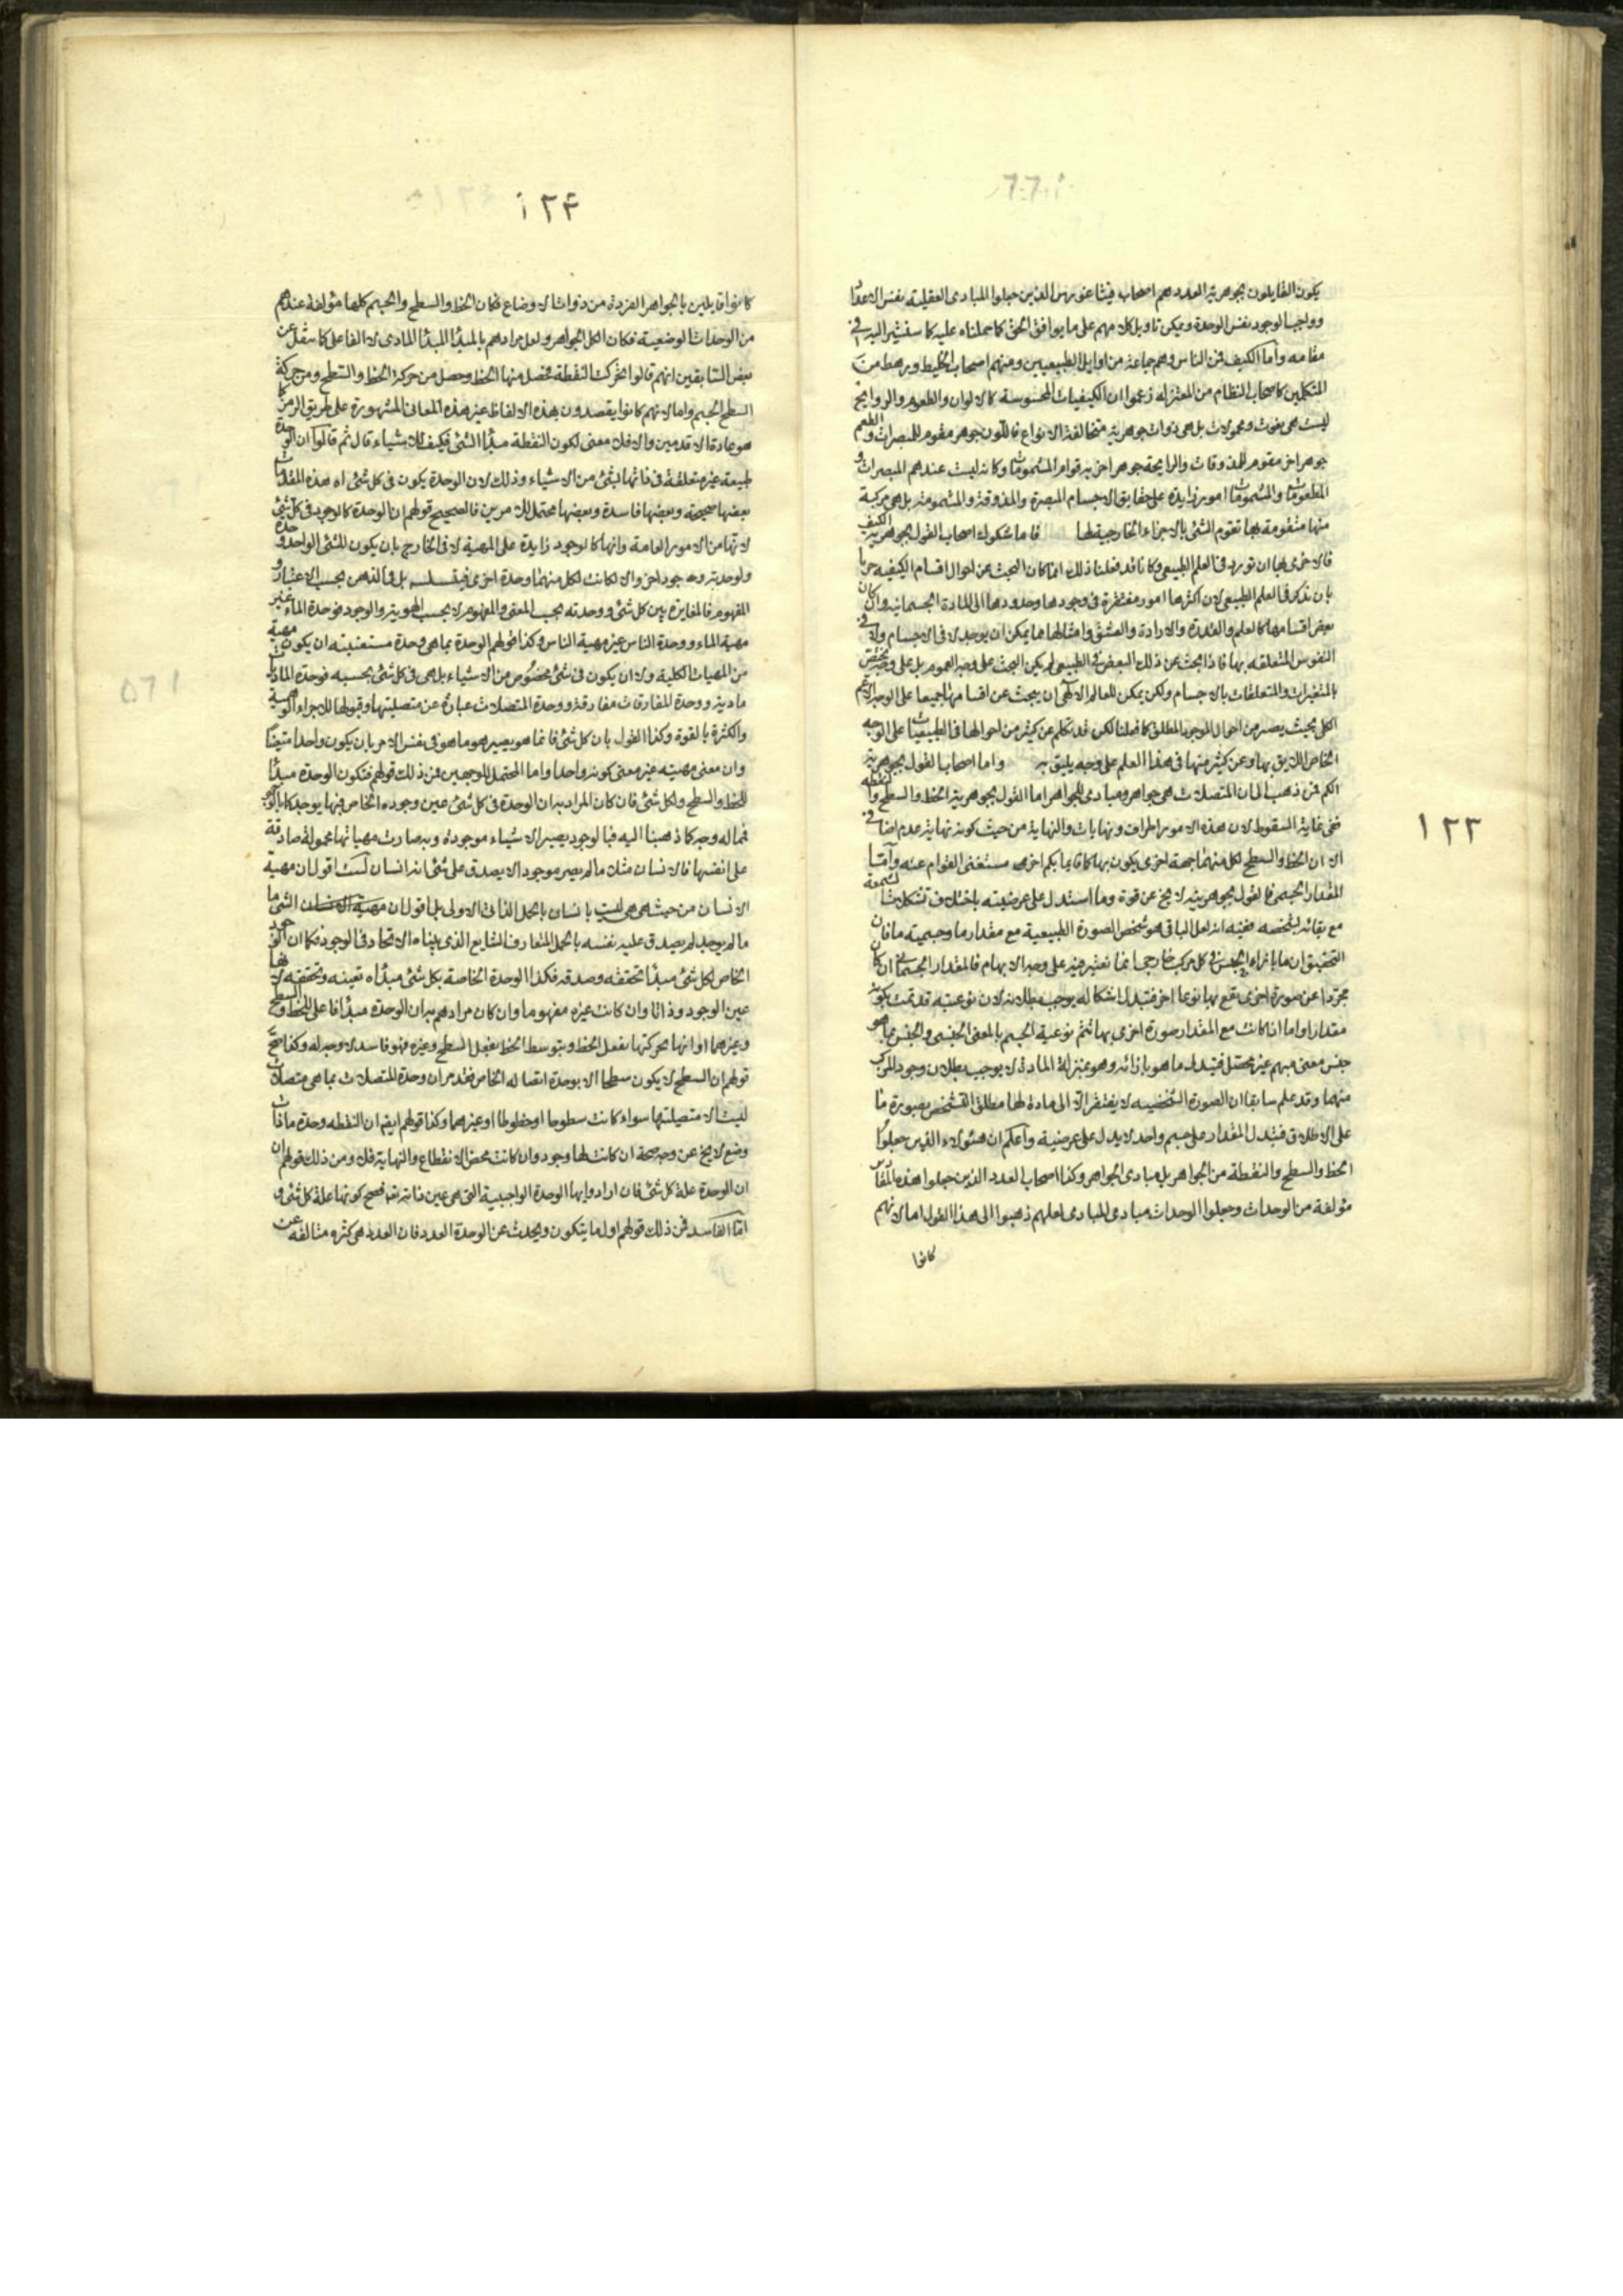 يكون القايلون بجوهرية العدد هم اصحاب فيثاغورس الذين جعلوا المبادى العقلية نفس الاعداد
وواجب الوجود نفس الوحدة ويمكن تاويل كلامهم على ما يوافق الحق كما حملناه عليه كما سنشير اليه فى
مقامه واما الكيف فمن الناس وهم جماعة من اوايل الطبيعيين ومنهم اصحاب الخليط ورهط من
المتكلمين كاصحاب النظام من المعتزله زعموا ان الكيفيات المحسوسة كالالوان والطعوم والروايح
ليست هى بنعوت ومحمولات بل هى ذوات جوهرية متخالفة الانواع فاللون جوهر مقوم للمبصرات والطعم
جوهر اخر مقوم للمذوقات والرايحة جوهر اخر به قوام المشمومات وكانه ليست عندهم المبصرات و
المطعومات والمشمومات امور زايدة على حقايق الاجسام المبصرة والمذوقة والمشمومة بل هى مركبة
منها متقومة بها تقوم الشئ بالاجزاء الخارجية لها فاما شكوك اصحاب القول بجوهرية الكيف
فالاحرى بها ان تورد فى العلم الطبيعى وكانا قد فعلنا ذلك انما كان البحث عن احوال اقسام الكيفيه حريا
بان يذكر فى العلم الطبيعى لان اكثرها امور مفتقرة فى وجودها وحدودها الى المادة الجسمانيه وان كان
بعض اقسامها كالعلم والقدرة والارادة والعشق وامثالها مما يمكن ان يوجد لا فى الاجسام ولا فى
النفوس المتعلقه بها فاذا بحث عن ذلك البعض فى الطبيعى لم يكن البحث على وجه العموم بل على وجه يختص
بالمتغيرات والمتعلقات بالاجسام ولكن يمكن للعالم الالهى ان يبحث عن اقسامها جميعا على الوجه الاعم
الكلى بحيث يصير من احوال الموجود المطلق كما فعلنا لكن قد تكلم عن كثير من احوالها فى الطبيعيات على الوجه
الخاص اللايق بها وعن كثير منها فى هذا العلم على وجه يليق به واما اصحاب القول بجوهرية
الكم فمن ذهب الى ان المتصلات هى جواهر ومبادى للجواهر اما القول بجوهرية الخط والسطح والنقطه
ففى غاية السقوط لان هذه الامور اطراف ونهايات والنهاية من حيث كونه نهاية عدم اضافى
الا ان الخط والسطح لكل منهما جهة اخرى يكون بها كما قايما بكم اخر هو مستغنى القوام عنه واما
المقدار الجسمى فالقول بجوهريته لا يخ عن قوة وما استدل على عرضيته باختلاف تشكلات الشمعة
مع بقائه بشخصه ففيه انه لعل الباقى هو شخص الصورة الطبيعية مع مقدار ما وجسمية ما فان
التحقيق ان ما بازاء الجنس فى كل مركب خارجى انما يعتبر فيه على وجه الابهام فالمقدار الجسمانى ان كان
مجردا عن صورة اخرى يقع بها نوعا اخر فتبدل اشكاله يوجب بطلانه لان نوعيته قد تمت بكونه
مقدارا واما اذا كانت مع المقدار صورة اخرى بها تتم نوعية الجسم بالمعنى الجنسى والجنس بما هو
جنس معنى مبهم غير محصل فتبدل ما هو بازائه وهو بمنزلة المادة لا يوجب بطلان وجود المركب
منهما وقد علم سابقا ان الصورة الشخصيه لا يفتقر الا الى مادة لها مطلق التشخص بصورة ما
على الاطلاق فتبدل المقدار على جسم واحد لا يدل على عرضية واعلم ان هؤلاء الذين جعلوا
الخط والسطح والنقطة من الجواهر بل مبادى الجواهر وكذا اصحاب العدد الذين جعلوا هذه المقادير
مؤلفة من الوحدات وجعلوا الوحدات مبادى المبادى لعلهم ذهبوا الى هذا القول اما لانهم
كانوا
١٢٣
١٢۴
كانوا قايلين بالجواهر الفردة من ذوات الاوضاع فكان الخط والسطح والجسم كلها مؤلفة عندهم
من الوحدات الوضعية فكان الكل الجواهر ولعل مرادهم بالمبدأ المبدأ المادى لا الفاعلى كما ينقل عن
بعض السابقين انهم قالوا تحركت النقطة فحصل منها الخط وحصل من حركة الخط والسطح ومن حركة
السطح الجسم واما لانهم كانوا يقصدون بهذه الالفاظ غير هذه المعانى المشهورة على طريق الرمز كما
هو عادة الاقدمين والا فلا معنى لكون النقطة مبدأ الشئ فكيف للاشياء قال ثم قالوا ان الوحدة
طبيعة غير متعلقة فى ذاتها بشئ من الاشياء وذلك لان الوحدة يكون فى كل شئ اه هذه المقدمات
بعضها صحيحة وبعضها فاسدة وبعضها محتمل للامرين فالصحيح قولهم ان الوحدة كالوجود فى كل شئ
لانها من الامور العامة وانها كالوجود زايدة على المهية لا فى الخارج بان يكون للشئ الواحد وحدة
ولوحدته وجود اخر والا لكانت لكل منهما وحدة اخرى فيتسلسل بل فى الذهن بحسب الاعتبار و
المفهوم فالمغايرة بين كل شئ ووحدته بحسب المعنى والمفهوم لا بحسب الهوية والوجود فوحدة الماء غير
مهية الماء ووحدة الناس غير مهية الناس وكذا قولهم الوحدة بما هى وحدة مستغنيته ان يكون مهية
من المهيات الكلية ولا ان يكون فى شئ مخصوص من الاشياء بل هى فى كل شئ بحسبه فوحدة الماديات
مادية ووحدة المفارقات مفارقة ووحدة المتصلات عبارة عن متصليتها وقبولها للاجزاء الوهمية
والكثرة بالقوة وكذا القول بان كل شئ فانما هو يصير هو ما هو فى نفس الامر بان يكون واحدا متعينا
وان معنى مهيته غير معنى كونه واحدا واما المحتمل للوجهين فمن ذلك قولهم فتكون الوحدة مبدأ
للخط والسطح ولكل شئ فان كان المراد به ان الوحدة فى كل شئ عين وجوده الخاص فيها يوجد كما بالوجود
فما له وجه كما ذهبنا اليه فبالوجود يصير الاشياء موجودة وبه صارت مهياتها محمولة صادقة
على انفسها فالانسان مثلا ما لم يصر موجودا لا يصدق على شئ انه انسان لست اقول ان مهية
الانسان من حيث هى هى ليست بانسان بالحمل الذاتى الاولى بل اقول ان الشئ ما
ما لم يوجد لم يصدق عليه نفسه بالحمل المتعارف الشايع الذى بناه الاتحاد فى الوجود فكما ان الوجود
الخاص لكل شئ مبدأ تحققه وصدقه فكذا الوحدة الخاصة بكل شئ مبدأه تعينه وتحققه لانها
عين الوجود وذاتا وان كانت غيره مفهوما وان كان مرادهم به ان الوحدة مبدأ فاعلى للخط والسطح
وغيرهما او انها بحركتها يفعل الخط وبتوسط الخط يفعل السطح وغيره فهو فاسد لا وجه له وكذا صح
قولهم ان السطح لا يكون سطحا الا بوحدة اتصاله الخاص فقد مر ان وحدة المتصلات بما هى متصلات
ليست الا متصليتها سواء كانت سطوحا او خطوطا او غيرهما وكذا قولهم ايضا ان النقطه وحدة ما ذات
وضع لا يخ عن وجه صحة ان كانت لها وجود وان كانت محض الانقطاع والنهاية فلا ومن ذلك قولهم ان
ان الوحدة علة كل شئ فان ارادوا بها الوحدة الواجبية التى هى عين ذاته تعه فصح كونها علة كل شئ و
اما الفاسد فمن ذلك قولهم اول ما يتكون ويحدث عن الوحدة العدد فان العدد هى كثرة متالفه عن